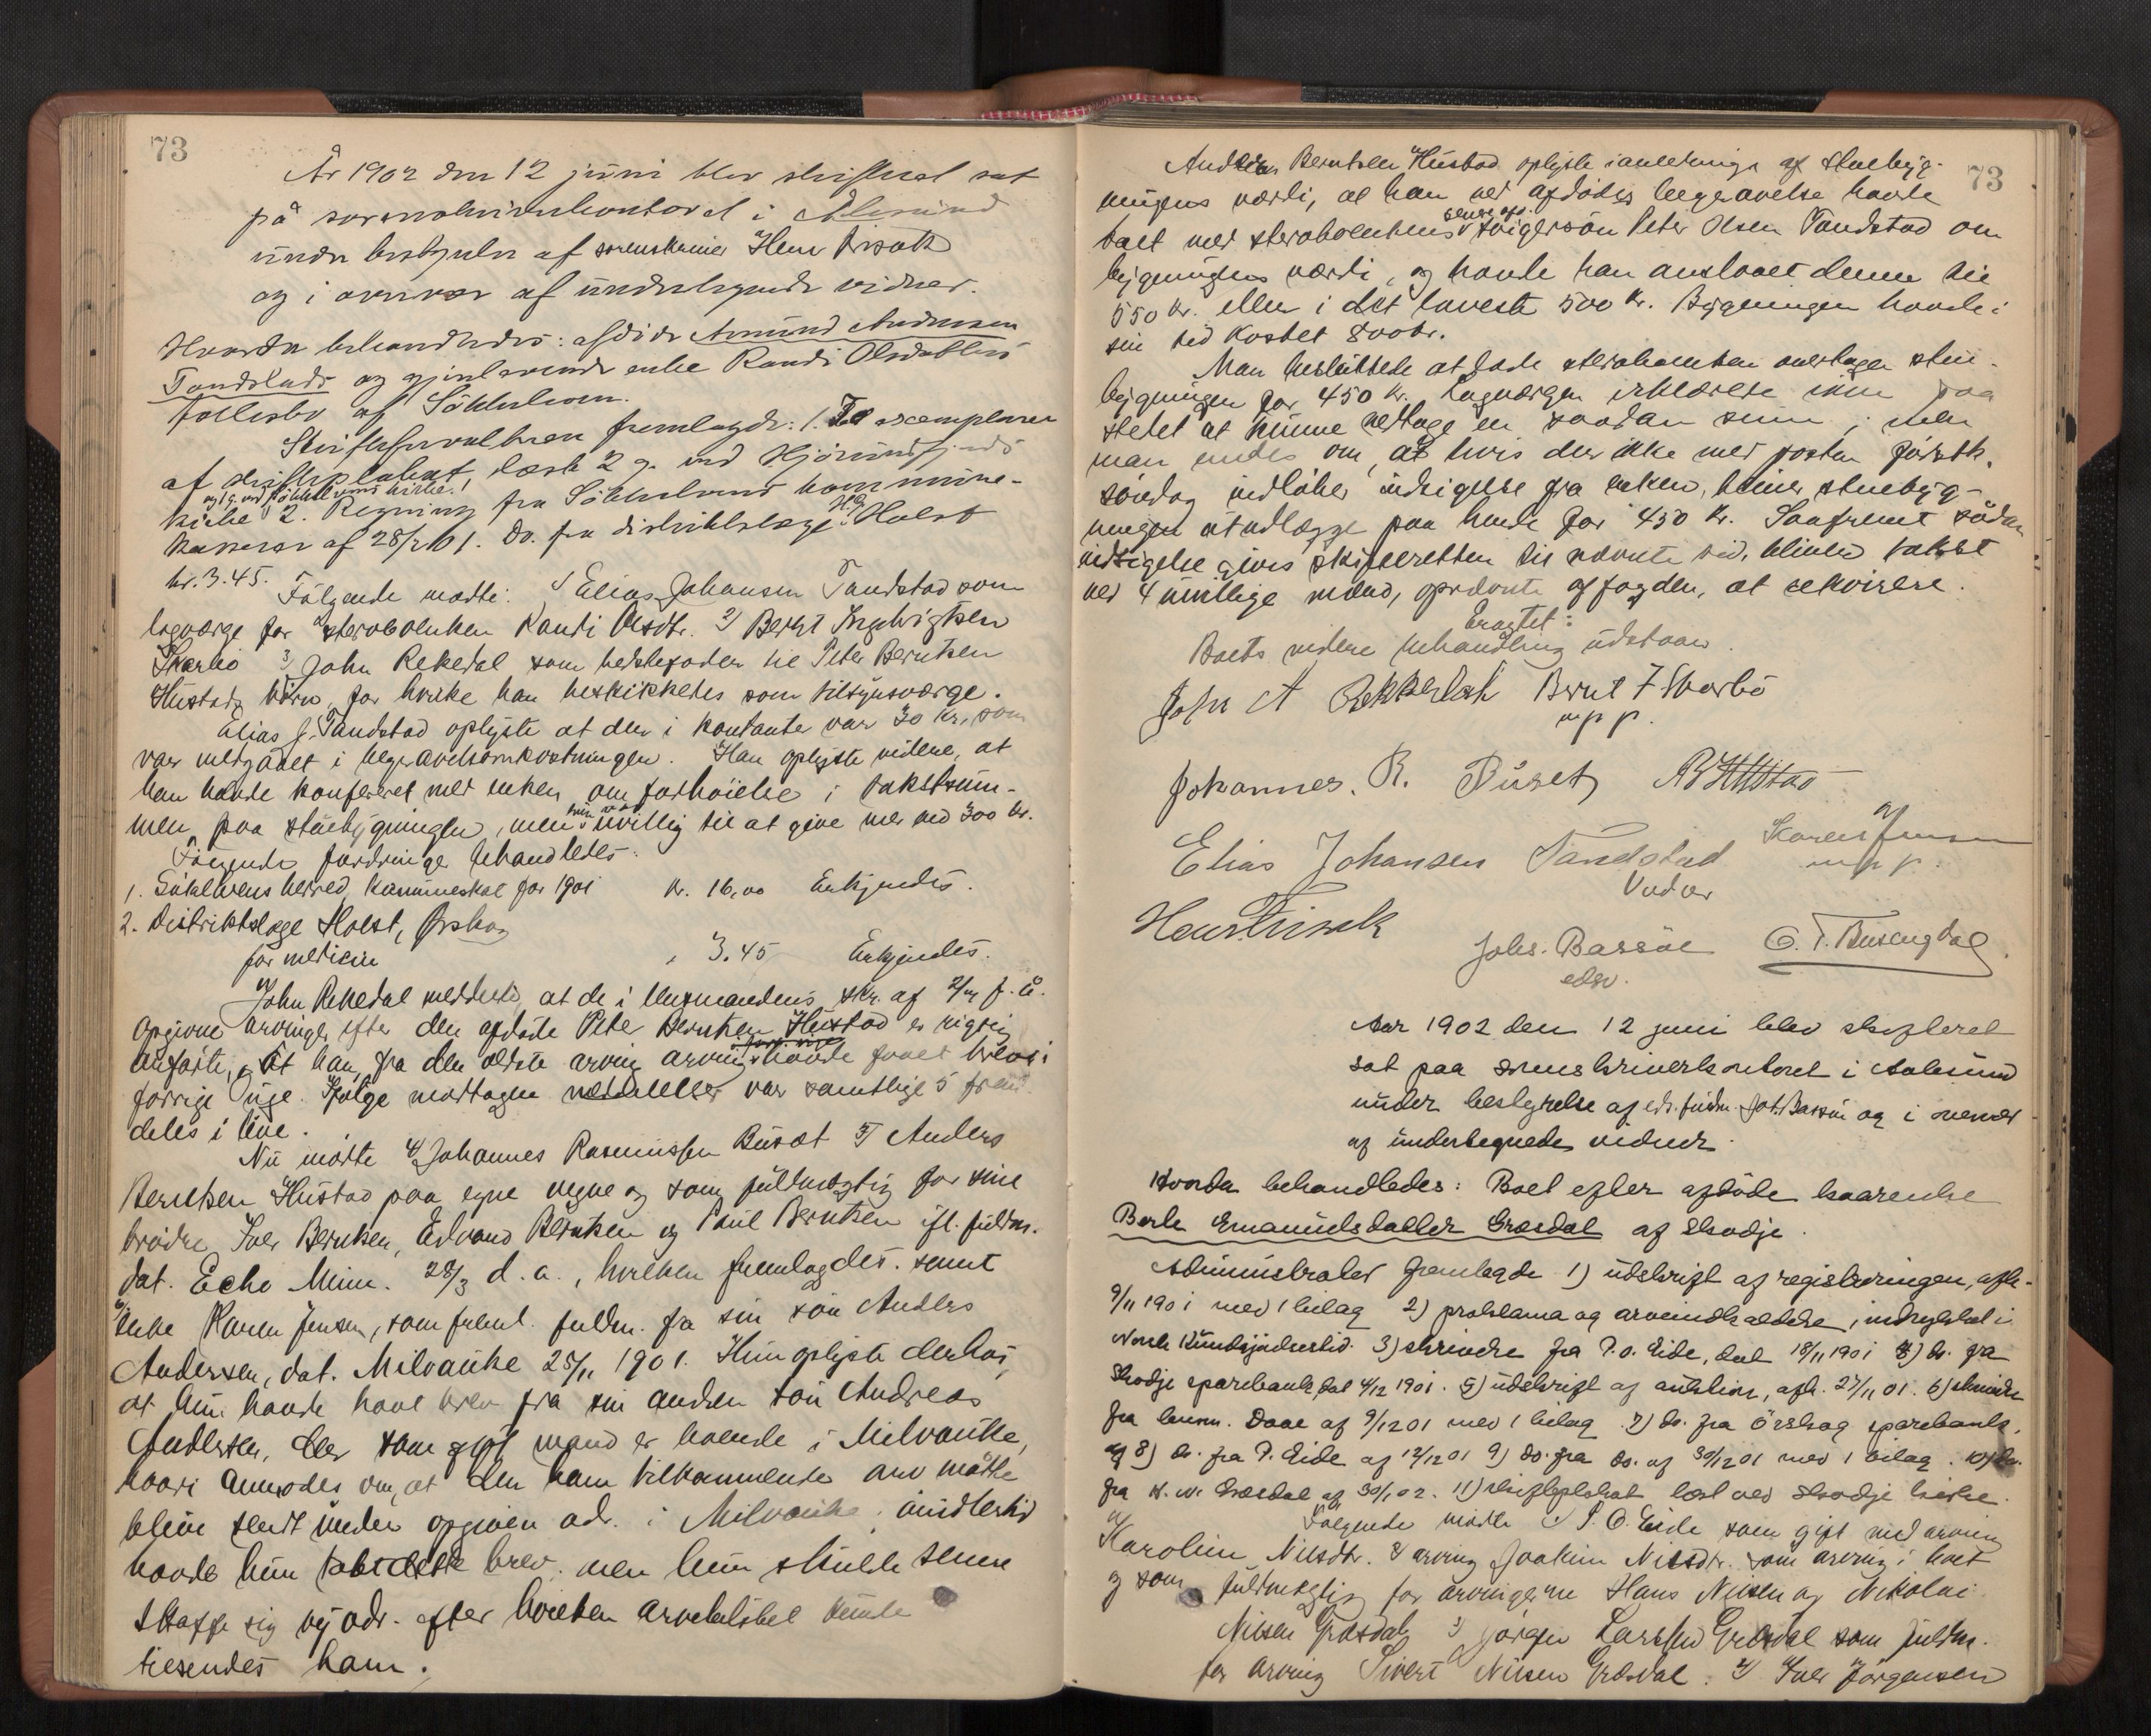 73
År 1902 den 12 juni blev skifteret sat
på sorenskriverkontoret i Ålesund
under bestyrelse af sorenskriver Henr Frisak
og i overvær af undertegnede vidner.
Hvorda behandledes: afdøde Amund Andersen
Tandstads og gjenlevende enke Randi Olsdatters
fællesbo af Søkkelven.
Skifteforvalteren fremlagde: 1. To exemplarer
af skifteplakat, læste 2 g. ved Hjørundfjords
og 1 g. ved Søkkelvens kirke.
kirke 2. Regning fra Søkkelvens kommune-
kasserer af 28/2 01. Do. fra distriktslæge H.G. Holst
kr. 3.45. Følgende mødte: 1 Elias Johansen Tandstad som
lagværge for sterbolenken Randi Olsdtr. 2) Bernt Ingebrigtsen
Skarbø 3) John Rekedal som bedstefader til Peter Berntsen
Hustads børn, for hvilke han beskikkedes som tilsynsværge.
Elias J. Tandstad oplyste at der i kontanter var 30 kr., som
var medgaaet i begravelsomkostningen. Han oplyste videre, at
han havde konfereret med enken om forhøielse i takstsum-
men paa stuebygningen, men hun var uvillig til at give mer end 300 kr.
Følgende fordringer behandledes:
1. Søkelvens herred, kommuneskat for 1901 kr. 16,00 Erkjendes.
2. Distriktslæge Holst, Ørskog
for medicin " 3.45 Erkjendes.
John Rekedal meddelte, at de i lensmandens skr. af f. å.
opgivne arvinger efter den afdøde Peter Berntsen Hustad er rigtig
anførte, at han fra den ældste arving havde faaet brev i
forrige uge. Ifølge modtagen meddelelser var samtlige 5 frem-
deles i live.
Nu mødte 4) Johannes Rasmussen Buset 5) Anders
Berntsen Hustad paa egne vegne og som fuldmægtig for sine
brødre Iver Berntsen, Edvard Berntsen og Paul Berntsen ifl. fuldm.
dat. Echo Minn. 28/3 d. a., hvilken fremlagdes. samt
6) enke Karen Jensen, som freml. fuldm. fra sin søn Anders
Andersen, dat. Milvauke 25/11 1901. Hun oplyste derhos,
at hun havde havt brev fra sin anden søn Andreas
Andersen, der som gift mand er boende i Milvauke,
hvori anmodes om, at den ham tilkommende arv måtte
blive sendt under opgiven adr. i Milvauke, imidlertid
havde hun tabt dette brev, men hun skulde senere
skaffe sig ny adr. efter hvilken arvebeløbet kunde
tilsendes ham.
73
Anders Berntsen Hustad oplyste i anledning af stuebyg-
ningens værdi, at han ved afdødes begravelse havde
talt med sterbolenkens svigersøn Peter Olsen Tandstad om
bygningens værdi, og havde han anslaaet denne til
550 kr. eller i det laveste 500 kr. Bygningen havde i
sin tid kostet 800 kr.
Man besluttede at lade sterboenken overtage stue-
bygningen for 450 kr. Lagværgen erklærede ikke paa
stedet at kunne vedtage en saadan sum; men
man endes om, at hvis der ikke med posten førstk.
søndag indløber indsigelse fra enken, bliver stuebyg-
ningen at udlægge paa hende for 450 kr. Saafremt sådan
indsigelse gives skifteretten til nævnte tid, bliver takst
ved 4 uvillige mænd, opnævnte af fogden, at rekvirere.
Eragtet:
Boets videre behandling udstaar.
John A Rekkedal Bernt I Skarbø
m p p.
Johannes. R. Buset AB Hustad
Elias Johansen Tandstad Karen Jensen
m p p.
Vidner
Henr. Frisak
Johs. Bassøe O. T. Busengdal.
edsv.
Aar 1902 den 12 juni blev skifteret
sat paa sorenskriverkontoret i Aalesund
under bestyrelse af eds. fuldm. Joh. Bassøe og i overvær
af undertegnede vidner.
Hvorda behandledes: Boet efter afdøde kaarenke
Berte Emanuelsdatter Græsdal af Skodje.
Administrator fremlagde 1) udskrift af registreringen, afh.
9/11 1901 med 1 bilag 2) proklama og arveindkaldelse, indrykket i
Norsk Kundgjørelsestid. 3) skrivelse fra P. O. Eide, dat 18/11 1901 4) do. fra
Skodje sparebank, dat 4/12 1901. 5) udskrift af auktion, afh. 27/11 01. 6) skrivelse
fra lensm. Daae af 9/12 01 med 1 bilag 7) do. fra Ørskog sparebank,
8) do. fra P. Eide af 12/12 01 9) do. fra do. af 30/12 01 med 1 bilag. 10) do.
fra N. N. Græsdal af 30/1 02. 11) skifteplakat læst ved Skodje kirke.
Følgende mødte 1) P. O. Eide som gift med arving
Karoline Nilsdtr. 2) arving Joakim Nilsdtr. som arving i boet
og som fuldmægtig for arvingerne Hans Nilsen og Nikolai
Nilsen Græsdal 3) Jørgen Larssen Græsdal som fuldm.
for arving Sivert Nilsen Græsdal. 4) Iver Jørgensen